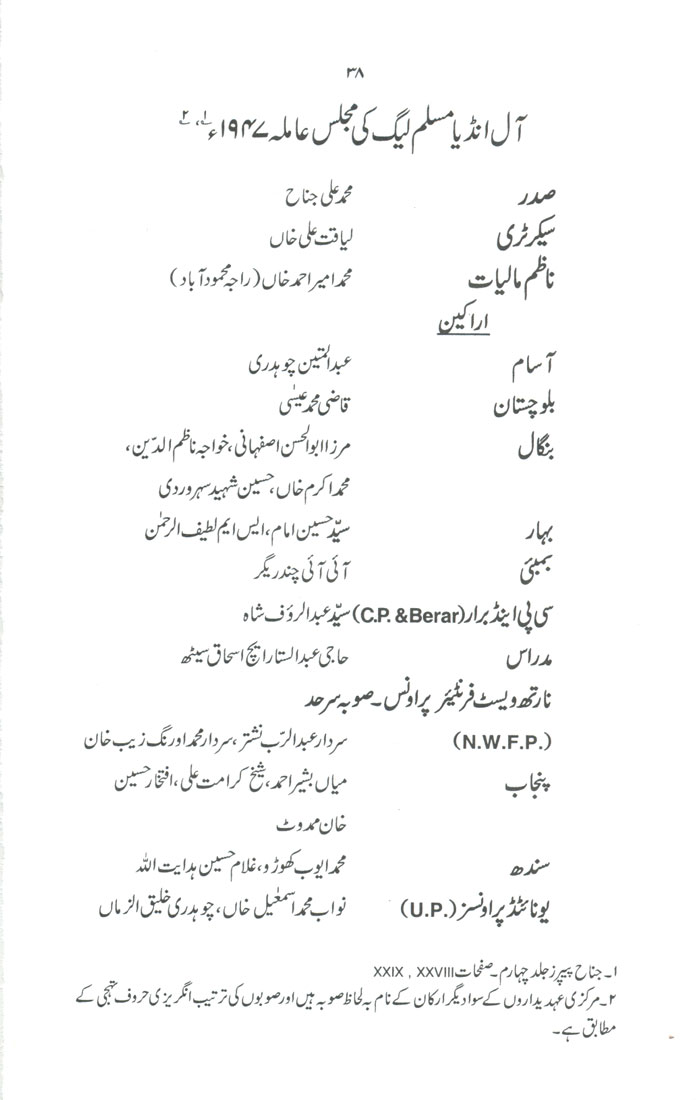 ۳۸
آل انڈیا مسلم لیگ کی مجلس عاملہ ۱۹۴۷ء ۱؎، ۲؎
صدر محمد علی جناح
سیکرٹری لیاقت علی خاں
ناظم مالیات محمد امیر احمد خاں (راجہ محمود آباد)
اراکین
آسام عبدالمتین چوہدری
بلوچستان قاضی محمد عیسٰی
بنگال مرزا ابوالحسن اصفہانی، خواجہ ناظم الدّین،
محمد اکرم خاں، حسین شہید سہروردی
بہار سیّد حسین امام، ایس ایم لطیف الرحمٰن
بمبئی آئی آئی چندریگر
سی پی اینڈ برار (C.P. &Berar) سیّد عبدالرؤف شاہ
مدراس حاجی عبدالستار ایچ اسحاق سیٹھ
نارتھ ویسٹ فرنٹیئر پراونس۔ صوبہ سرحد
(N.W.F.P.) سردار عبدالرّب نشتر، سردار محمد اورنگ زیب خان
پنجاب میاں بشیر احمد، شیخ کرامت علی، افتخار حسین
خان ممدوٹ
سندھ محمد ایوب کھوڑو، غلام حسین ہدایت اللہ
یونائٹڈ پراونسز (U.P.) نواب محمد اسمٰعیل خاں، چوہدری خلیق الزماں
۱۔ جناح پیپرز جلد چہارم۔ صفحات XXIX , XXVIII
۲۔ مرکزی عہدیداروں کے سوا دیگر ارکان کے نام بہ لحاظ صوبہ ہیں اور صوبوں کی ترتیب انگریزی حروف تہجی کے
مطابق ہے۔